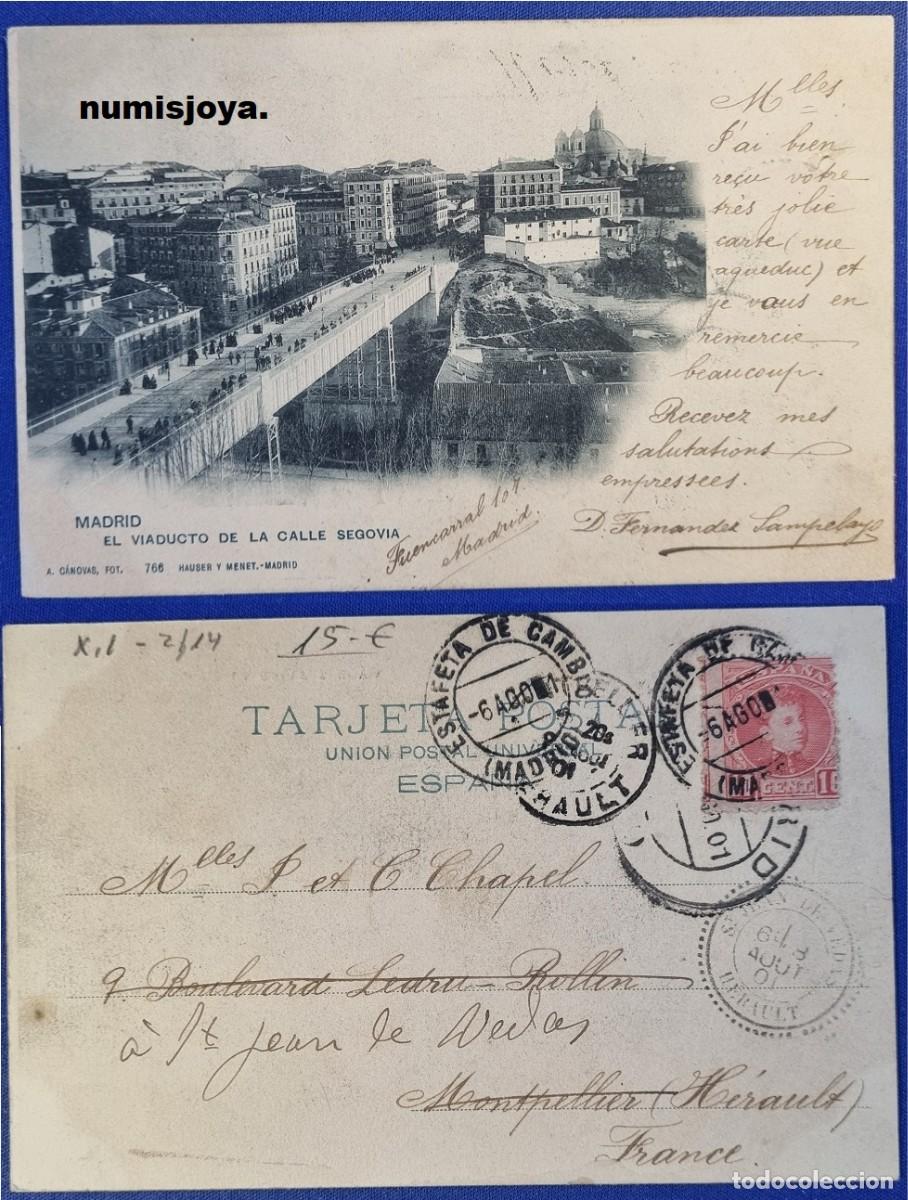 numisjoya.
Mlles.
J'ai bien
reçu vôtre
très jolie
carte (vue
aqueduc) et
je vous en
remercie
beaucoup.
Recevez mes
salutations
empressées.
D. Fernandez Sampelayo
Fuencarral 107.
Madrid.
MADRID
EL VIADUCTO DE LA CALLE SEGOVIA
A. CÁNOVAS, FOT. 766 HAUSER Y MENET.-MADRID
X,1 - 2/14 15-€
TARJETA POSTAL
UNION POSTAL UNIVERSAL
ESPAÑA
ESTAFETA DE CAMBIO
-6AGO 01
(MADRID)
HERAULT
ESTAFETA DE CAM
-6AGO
(MAD
ESPAÑA
CENT.
01
RID
Mlles J et C Chapel
9 Boulevard Ledru-Rollin
à St Jean de Vedas
Montpellier (Hérault)
France.
ST JEAN DE VEDAS
AOUT
01
HERAULT
todocoleccion